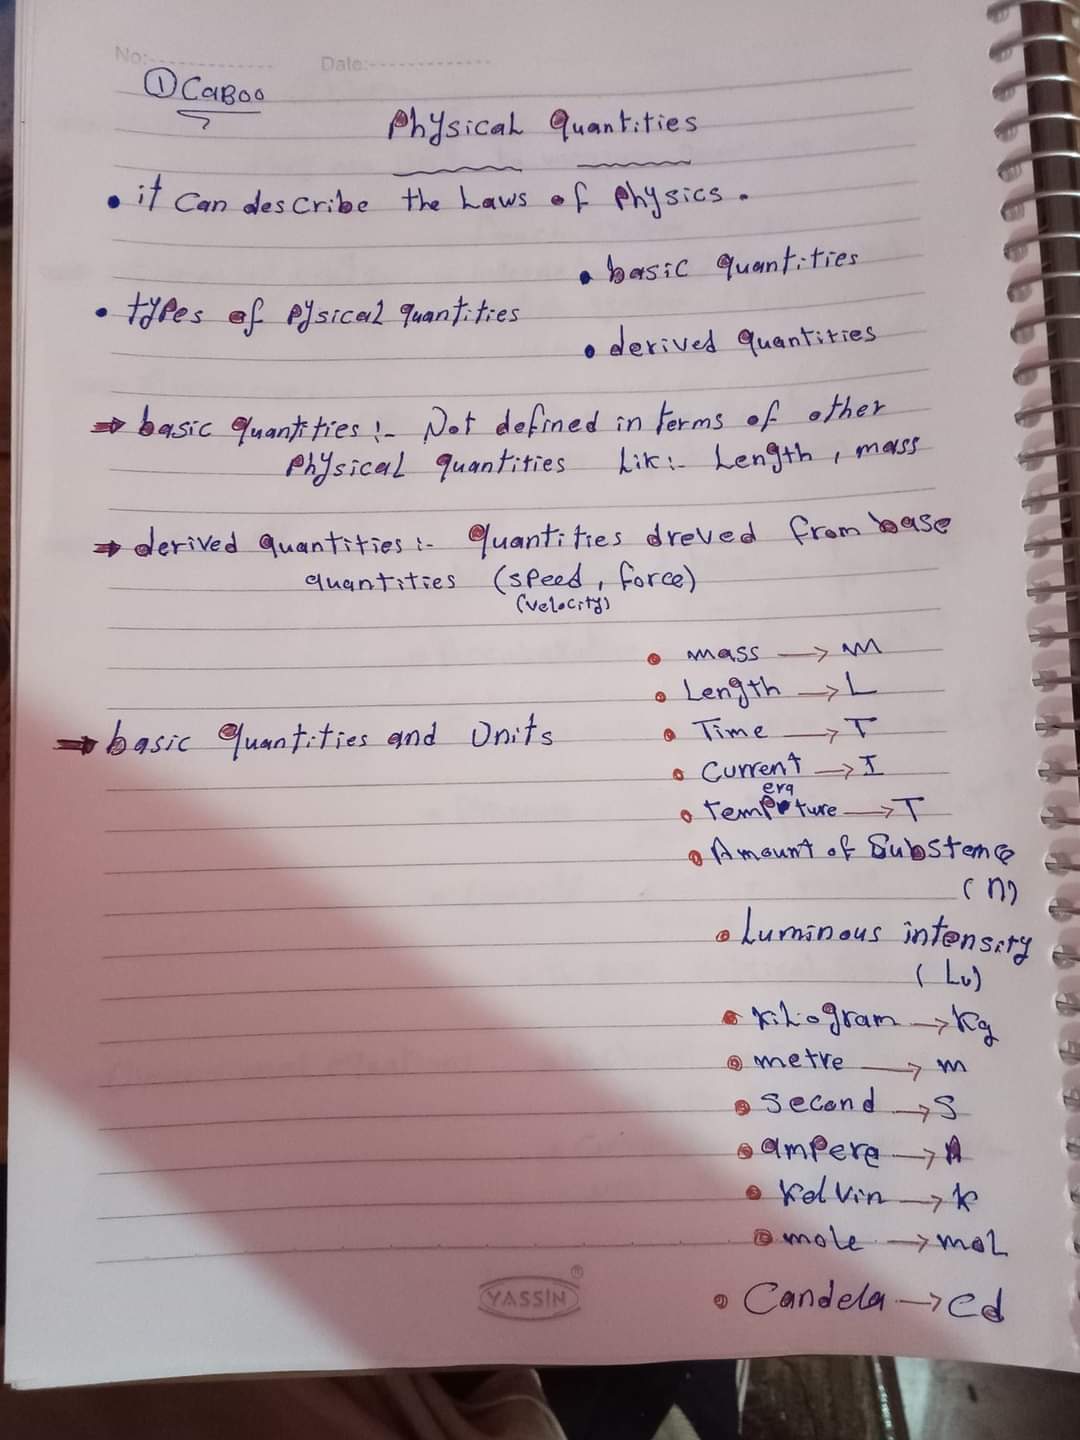 No:-------------- Date:--------------
① CaBoo
Physical Quantities
• it can describe the Laws of Physics.
• basic quantities
• types of Pysical quantities
• derived quantities
⇒ basic quantities :- Not defined in terms of other
Physical quantities Lik:- Length , mass
⇒ derived quantities :- quantities dreved from base
quantities (speed , force)
(velocity)
• mass → m
• Length → L
⇒ basic quantities and Units
• Time → T
• Current → I
era
• temp ture → T
• Amount of Substence
(n)
• Luminous intensity
(Lv)
• kiLogram → kg
• metre → m
• Second → S
• ampere → A
• kelvin → k
• mole → moL
YASSIN ®
• Candela → cd